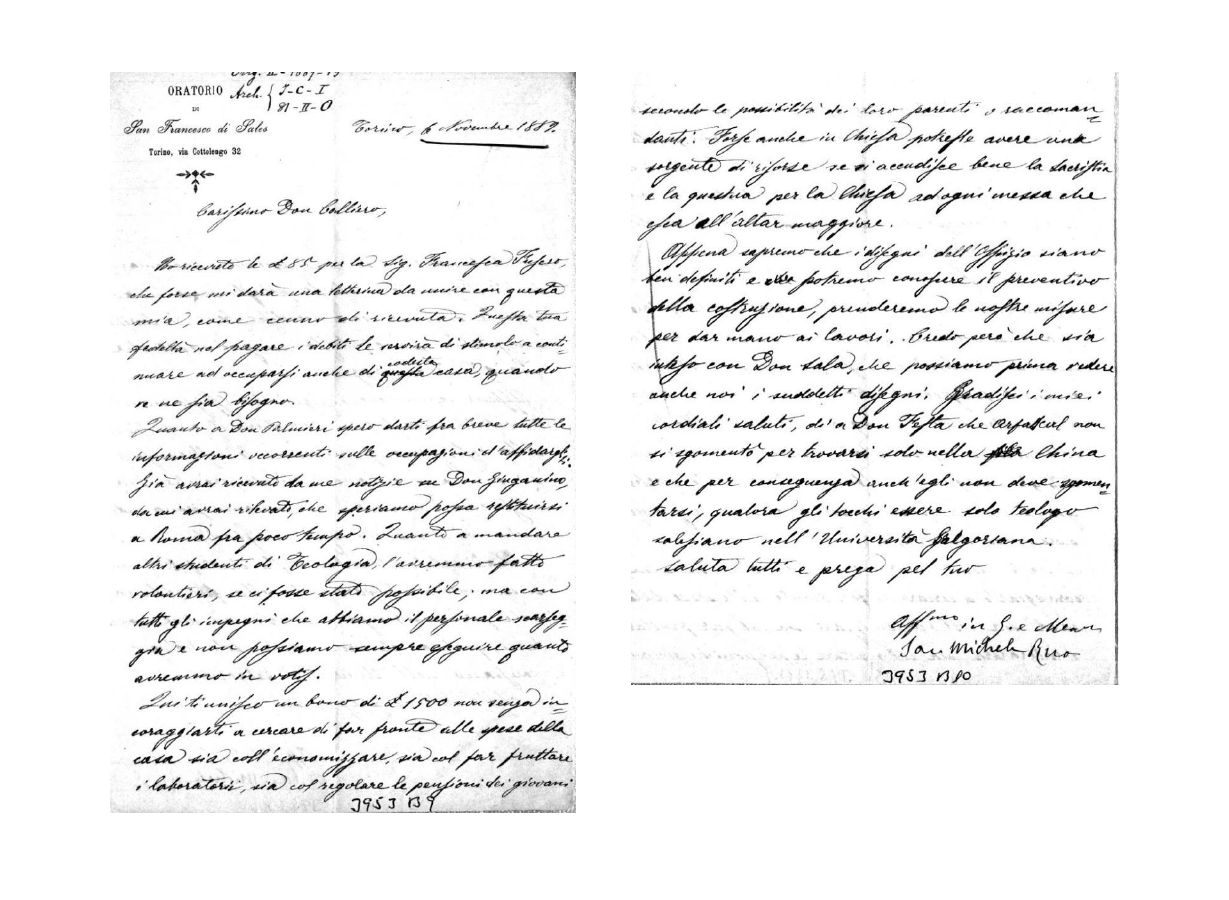 Org. II-1889-19
ORATORIO
Arch. { J-C-I
81-II-O
DI
San Francesco di Sales
Torino, 6 Novembre 1889.
Torino, via Cottolengo 32
Carissimo Don
Ho ricevuto le £ 85 per la Sig. Francesca Fusero,
che forse mi darà una letterina da unire con questa
mia, come cenno di ricevuta. Questa tua
fedeltà nel pagare i debiti le servirà di stimolo a conti-
nuare ad occuparsi anche di codesta casa, quando
ve ne sia bisogno.
Quanto a Don Palmieri spero darti fra breve tutte le
informazioni occorrenti sulle occupazioni d'affidargli.
Già avrai ricevuto da me notizie su Don
da cui avrai rilevato, che speriamo possa restituirsi
a Roma fra poco tempo. Quanto a mandare
altri studenti di Teologia, l'avremmo fatto
volontieri, se ci fosse stato possibile; ma con
tutti gli impegni che abbiamo il personale scarseg-
gia e non possiamo sempre eseguire quanto
avremmo in votis.
Qui ti unisco un bono di £ 1500 non senza in-
coraggiarti a cercare di far fronte alle spese della
casa sia coll'economizzare, sia col far fruttare
i laboratorii, sia col regolare le pensioni dei giovani
3953 B9
secondo le possibilità dei loro parenti o raccoman-
danti. Forse anche in Chiesa potreste avere una
sorgente di risorse se si accudisce bene la sacristia
e la questua per la Chiesa ad ogni messa che
esca all'altar maggiore.
Appena sapremo che i disegni dell'Ospizio siano
ben definiti e potremo conoscere il preventivo
della costruzione, prenderemo le nostre misure
per dar mano ai lavori. Credo però che sia
inteso con Don Sala, che possiamo prima vedere
anche noi i suddetti disegni. Gradisci i miei
cordiali saluti, di a Don Festa che Arfaxad non
si sgomentò per trovarsi solo nella China
e che per conseguenza anch'egli non deve sgomen-
tarsi, qualora gli tocchi essere solo teologo
salesiano nell'Università Gregoriana.
Saluta tutti e prega pel tuo
Aff.mo in G. e Maria
Sac. Michele Rua
3953 B10